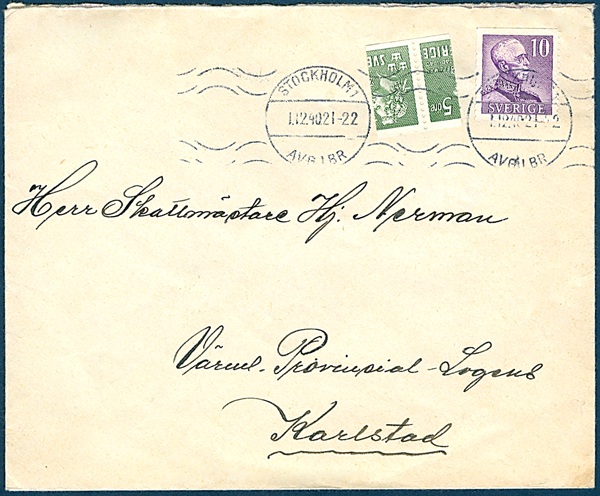 SVERIGE
5 ÖRE
10
SVERIGE
STOCKHOLM 1
1.12.40 21-22
AVG. 1 BR.
1.12.40 21-22
AVG. 1 BR.
Herr Skattmästare Hj. Nerman
Värml. Provincial-Logens
Karlstad